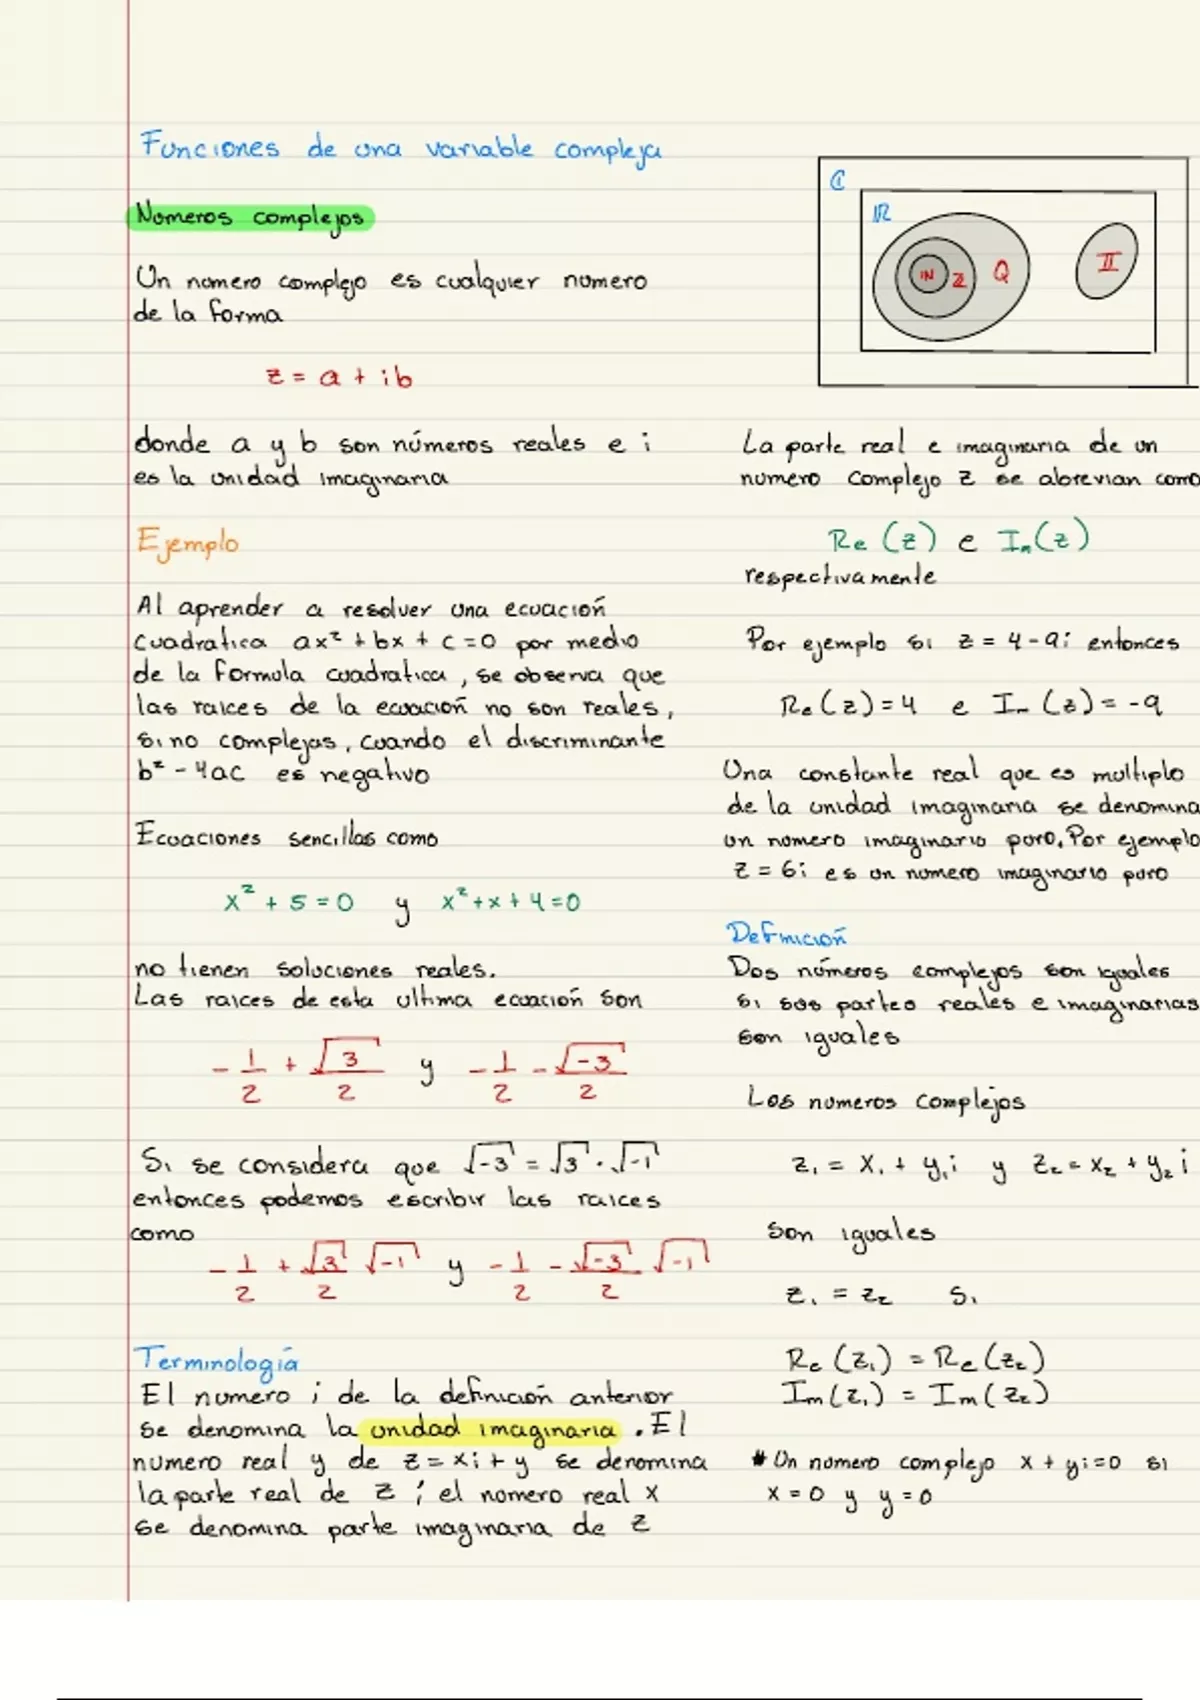 Funciones de una variable compleja
Numeros complejos
Un numero complejo es cualquier numero
de la forma
z = a + ib
donde a y b son números reales e i
es la unidad imaginaria
Ejemplo
Al aprender a resolver una ecuación
cuadratica ax² + bx + c = 0 por medio
de la formula cuadratica, se observa que
las raices de la ecuación no son reales,
sino complejas, cuando el discriminante
b² - 4ac es negativo
Ecuaciones sencillas como
x² + 5 = 0 y x² + x + 4 = 0
no tienen soluciones reales.
Las raices de esta ultima ecuación son
- 1/2 + √3/2 y - 1/2 - √-3/2
Si se considera que √-3 = √3 · √-1
entonces podemos escribir las raices
como
- 1/2 + √3/2 √-1 y - 1/2 - √-3/2 √-1
Terminología
El numero i de la definición anterior
se denomina la unidad imaginaria. El
numero real y de z = xi + y se denomina
la parte real de z ; el numero real x
se denomina parte imaginaria de z
ℂ
ℝ
ℕ ℤ Q 𝕀
La parte real e imaginaria de un
numero complejo z se abrevian como
Re (z) e Im(z)
respectivamente
Por ejemplo si z = 4 - 9i entonces
Re(z) = 4 e Im(z) = -9
Una constante real que es multiplo
de la unidad imaginaria se denomina
un numero imaginario puro. Por ejemplo
z = 6i es un numero imaginario puro
Definición
Dos números complejos son iguales
si sus partes reales e imaginarias
son iguales
Los numeros complejos
z₁ = x₁ + y₁i y z₂ = x₂ + y₂ i
son iguales
z₁ = z₂ si
Re (z₁) = Re (z₂)
Im(z₁) = Im(z₂)
* Un numero complejo x + yi = 0 si
x = 0 y y = 0